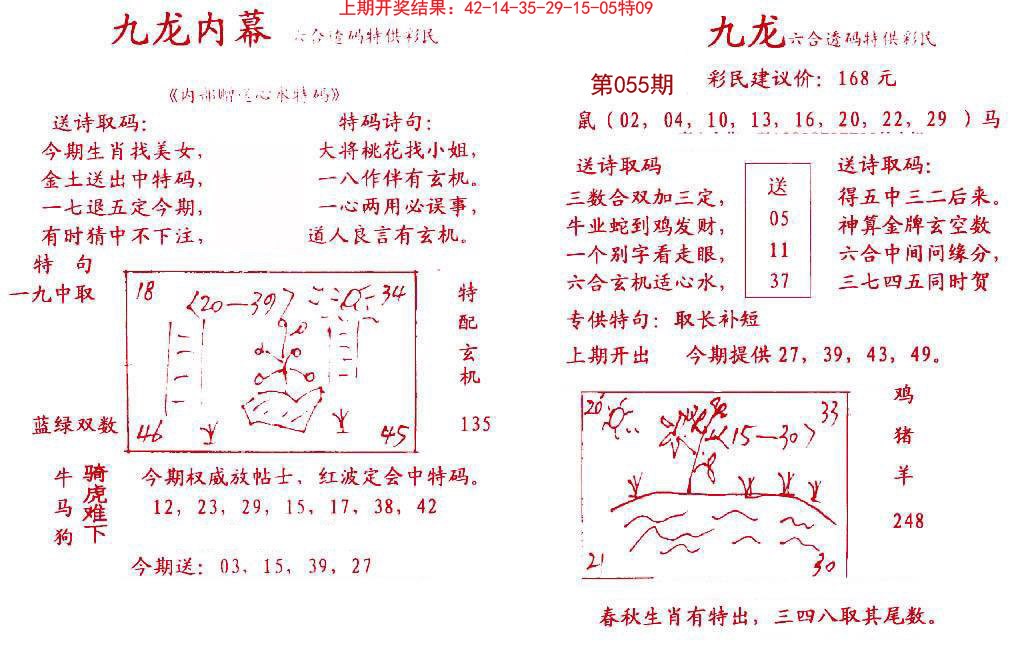 上期开奖结果：42-14-35-29-15-05特09
九龙内幕
六合透码特供彩民
《内部赠送心水特码》
送诗取码：
今期生肖找美女，
金土送出中特码，
一七退五定今期，
有时猜中不下注，
特码诗句：
大将桃花找小姐，
一八作伴有玄机。
一心两用必误事，
道人良言有玄机。
特 句
一九中取
蓝绿双数
18
〈20—39〉
34
46
45
特
配
玄
机
135
牛
马
狗
骑
虎
难
下
今期权威放帖士，红波定会中特码。
12，23，29，15，17，38，42
今期送：03，15，39，27
九龙
六合透码特供彩民
第055期
彩民建议价：168元
鼠（02，04，10，13，16，20，22，29 ）马
送诗取码
三数合双加三定，
牛业蛇到鸡发财，
一个别字看走眼，
六合玄机适心水，
送
05
11
37
送诗取码：
得五中三二后来。
神算金牌玄空数
六合中间问缘分，
三七四五同时贺
专供特句：取长补短
上期开出 今期提供27，39，43，49。
20
33
〈15—30〉
21
30
鸡
猪
羊
248
春秋生肖有特出，三四八取其尾数。